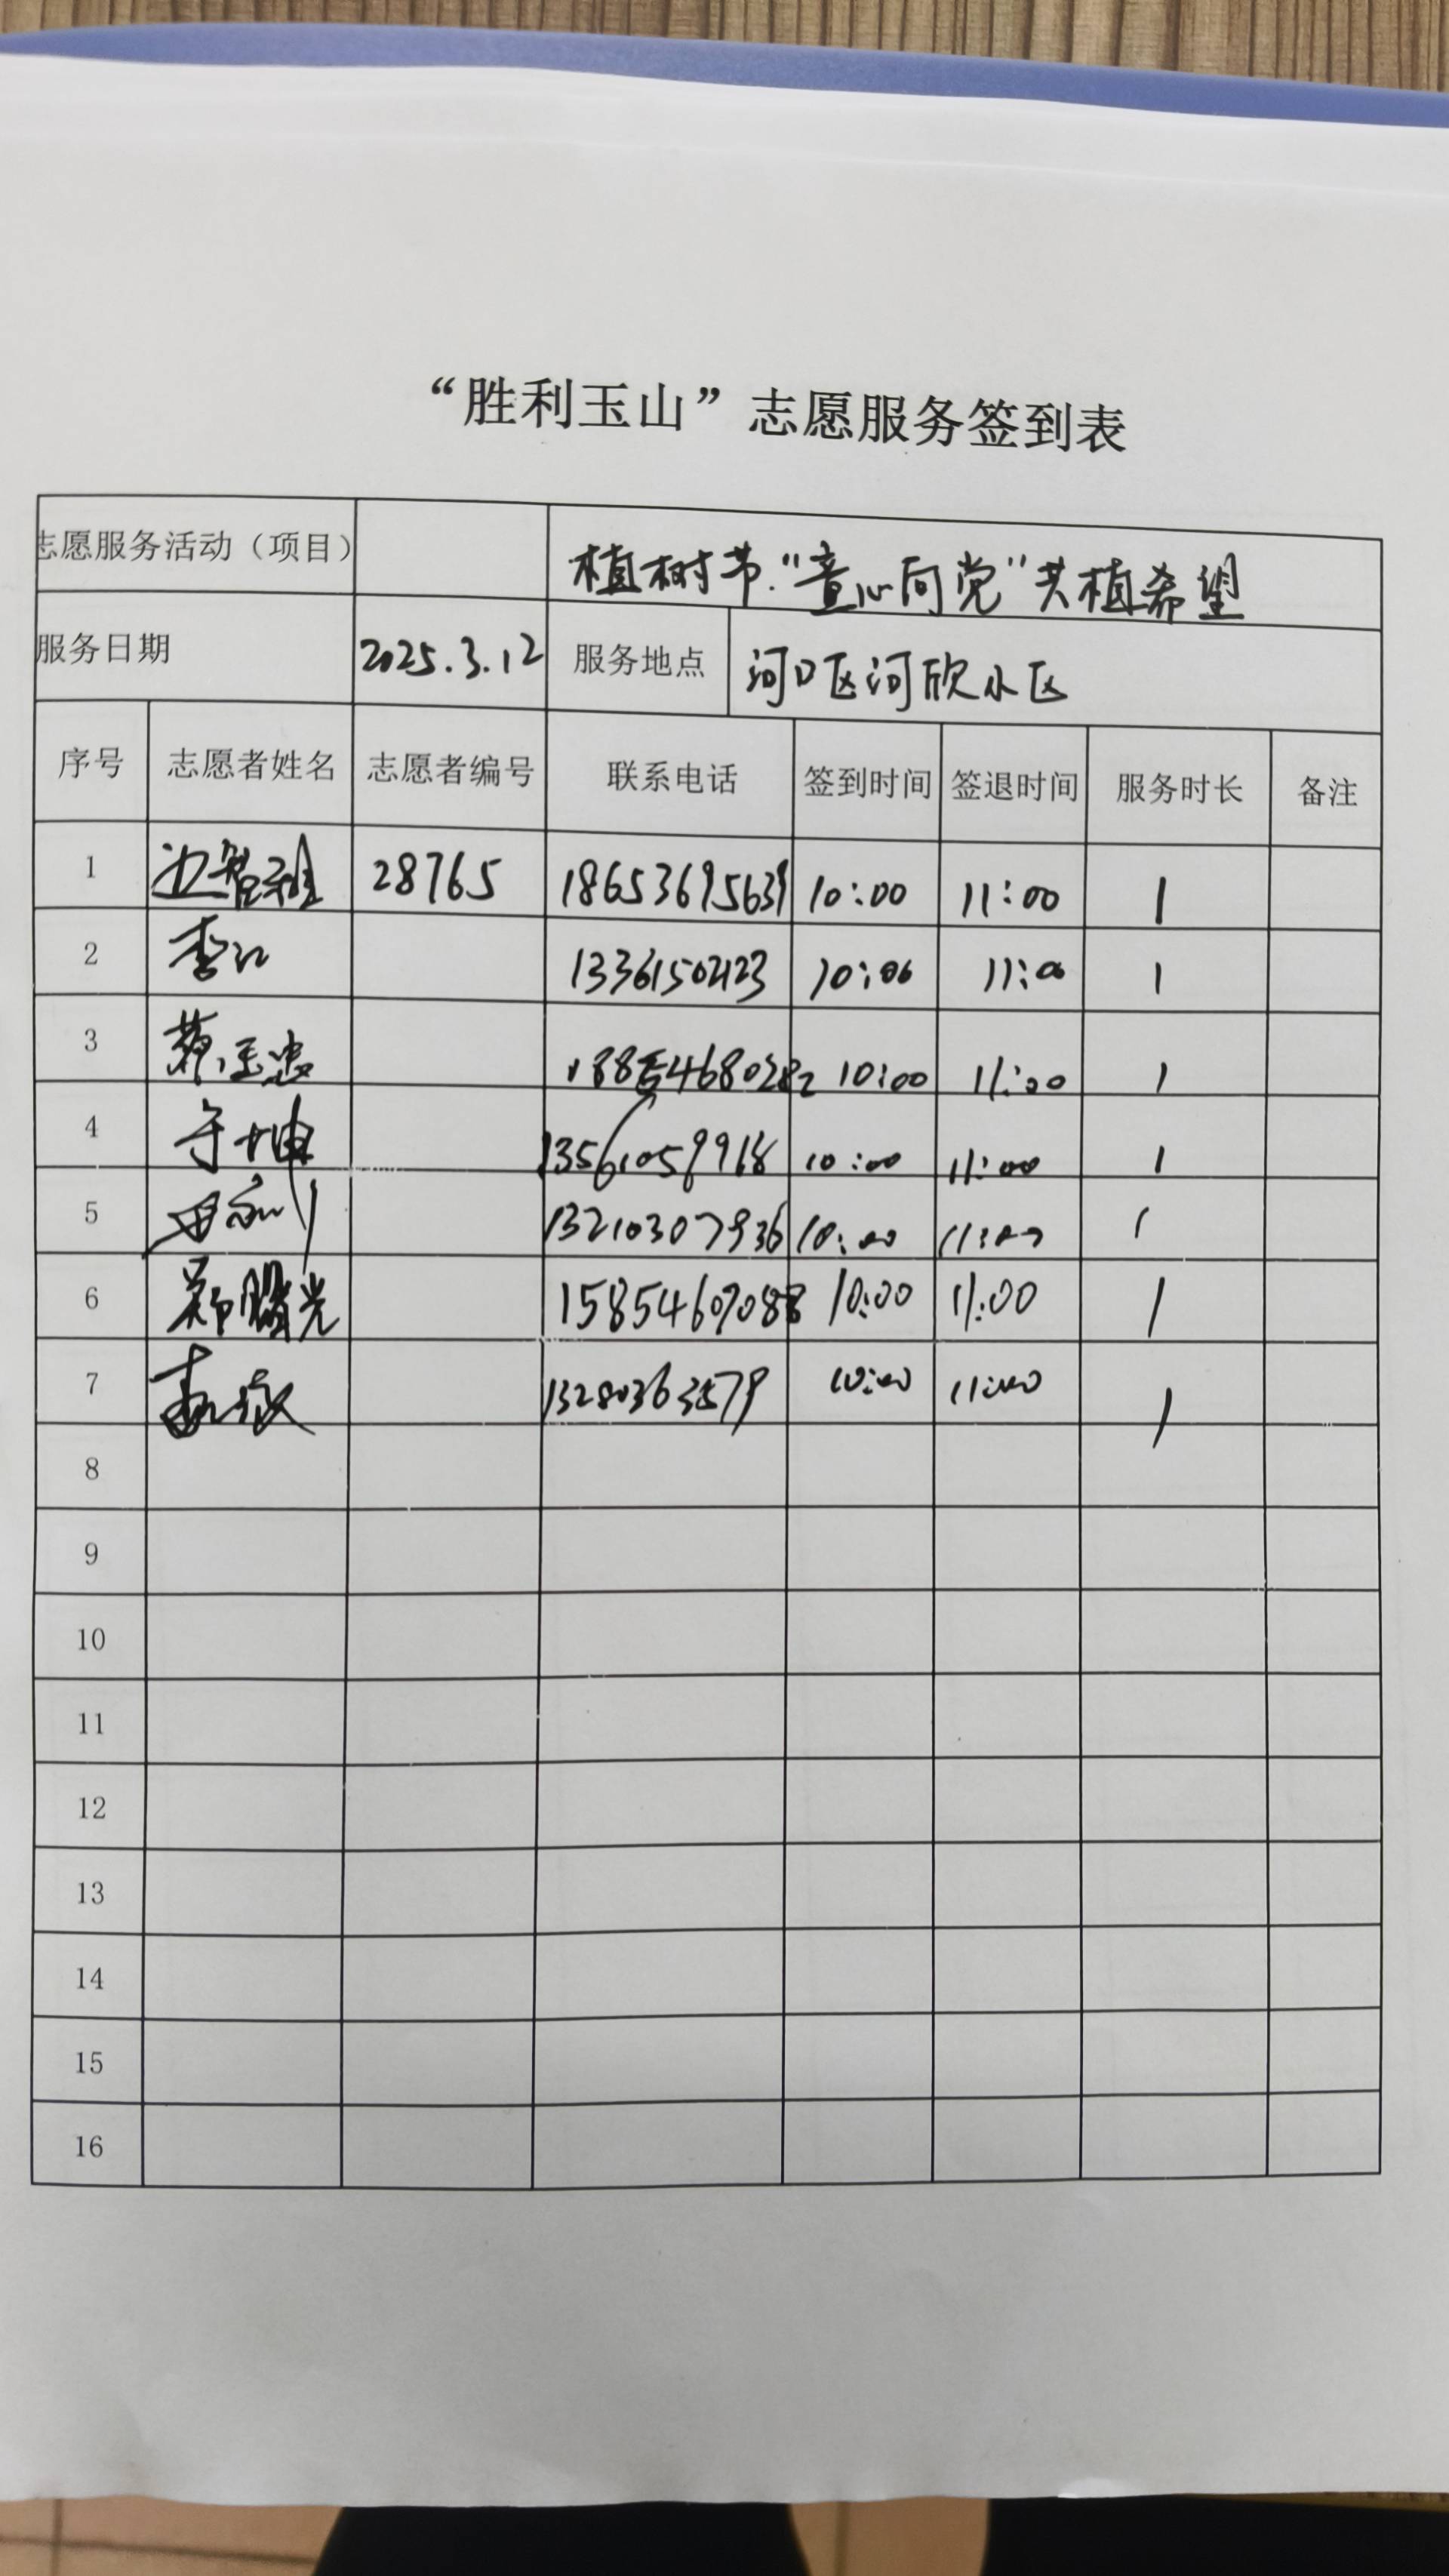 “胜利玉山”志愿服务签到表
志愿服务活动（项目） 植树节.“童心向党”共植希望
服务日期 2025.3.12 服务地点 河口区河欣小区
序号 志愿者姓名 志愿者编号 联系电话 签到时间 签退时间 服务时长 备注
1 28765 18653695639 10:00 11:00 1
2 李江 13361502123 10:00 11:00 1
3 10:00 11:00 1
4 13561059918 10:00 11:00 1
5 13210307936 10:00 11:00 1
6 10:00 11:00 1
7 13280363579 10:00 11:00 1
8
9
10
11
12
13
14
15
16